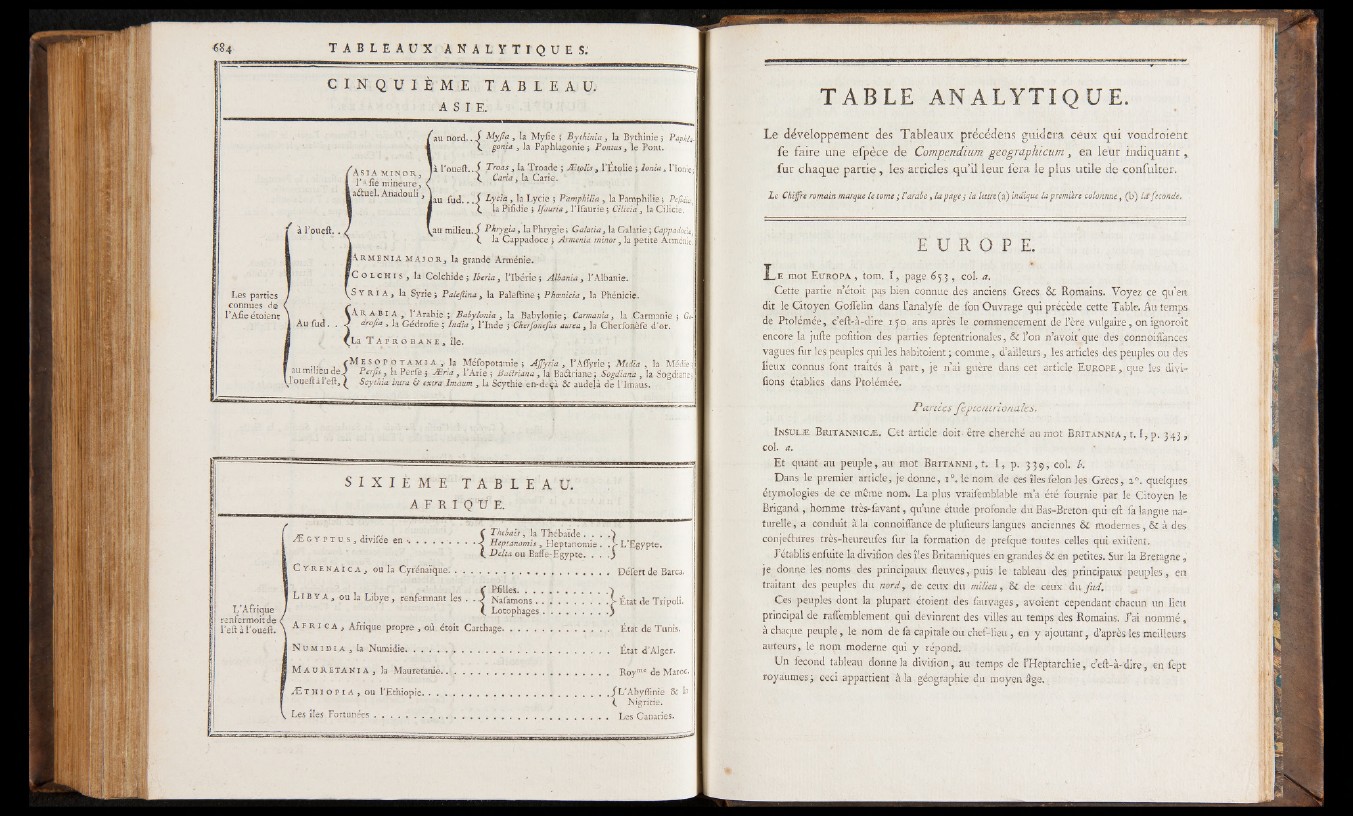 684 TABLEAUX ANALYTIQUES.
CINQUIÈME TABLEAU.
ASIE.
au nord.. Myſia, la Myſie ; Bythinia, la Bythinie ; Paphla-
gonia, la Paphlagonie ; Pontus, le Pont.
ASIA MINOR,
l'Aſie mineure,
actuel. Anadouli,
à l'oueſt.. Troas, la Troade ; Ætolis, l'Étolie ; Ionia, l'Ionie ;
Caria, la Carie.
au ſud... Lycia, la Lycie ; Pamphilia, la Pamphilie ;
la Piſidie ; Iſauria, l'Iſaurie ; Cilicia, la Cilicie.
au milieu.. Phrygia, la Phrygie ; Galatia, la Galatie ; Cappadocia,
la Cappadoce ; Armenia minor, la petite Arménie.
à l'oueſt..
ARMENIA MAJOR, la grande Arménie.
COLCHIS, la Colchide ; Iberia, l'Ibérie ; Albania, l'Albanie.
SYRIA, la Syrie ; Paleſtina, la Paleſtine ; Phœnicia, la Phénicie.
Les parties
connues de
l'Aſie étoient
Au ſud...
ARABIA, l'Arabie ; Babylonia, la Babylonie ; Carmania, la Carmanie ; Ge-
droſia, la Gédroſie ; India, l'Inde ; Cherſoneſus aurea, la Cherſonèſe d'or.
La TAPROBANE, île.
au milieu de
l'oueſt à l'eſt,
MESOPOTAMIA, la Méſopotamie ; Aſſyria, l'Aſſyrie ; Media, la Médie ;
Perſis, la Perſe ; Æria, l'Arie ; Bactriana, la Bactriane ; Sogdiana, la Sogdiane ;
Scythia intra & extra Imaum, la Scythie en-deçà & audelà de l'Imaus.
SIXIEME TABLEAU.
AFRIQUE.
ÆGYPTUS, diviſée en . . . . . . . . Thébaïs, la Thébaïde . . . .
Heptanomis, Heptanomie . . L'Egypte.
Delta ou Baſſe-Egypte. . . .
CYRENAICA, ou la Cyrénaïque. . . . . . . . . . . . . . . . . . Déſert de Barca.
LIBYA, ou la Libye, renfermant les . . . Pſilles. . . . . . . . . . .
Naſamons . . . . . . . . . État de Tripoli.
Lotophages . . . . . . . . .
L'Afrique
renfermoit de
l'eſt à l'oueſt.
AFRICA, Afrique propre, où étoit Carthage. . . . . . . . . . . . État de Tunis.
NUMIDIA, la Numidie. . . . . . . . . . . . . . . . . . . . . État d'Alger.
MAURETANIA, la Mauretanie. . . . . . . . . . . . . . . . . . Royme de Maroc.
ÆTHIOPIA, ou l'Ethiopie. . . . . . . . . . . . . . . . . . . L'Abyſſinie & la
Nigritie.
Les îles Fortunées . . . . . . . . . . . . . . . . . . . . . . Les Canaries.
TABLE ANALYTIQUE.
Le développement des Tableaux précédens guidera ceux qui voudroient
ſe faire une eſpèce de Compendium geographicum, en leur indiquant,
ſur chaque partie, les articles qu'il leur ſera le plus utile de conſulter.
Le Chiffre romain marque le tome ; l'arabe, la page ; la lettre (a) indique la première colonne, (b) la ſeconde.
EUROPE.
LE mot EUROPA, tom. I, page 653, col. a.
Cette partie n'étoit pas bien connue des anciens Grecs & Romains. Voyez ce qu'en
dit le Citoyen Goſſelin dans l'analyſe de ſon Ouvrage qui précède cette Table. Au temps
de Ptolémée, c'eſt-à-dire 150 ans après le commencement de l'ère vulgaire, on ignoroit
encore la juſte poſition des parties ſeptentrionales, & l'on n'avoit que des connoiſſances
vagues ſur les peuples qui les habitoient ; comme, d'ailleurs, les articles des peuples ou des
lieux connus ſont traités à part, je n'ai guère dans cet article EUROPE, que les divi-
ſions établies dans Ptolémée.
Parties ſeptentrionales.
INSULÆ BRITANNICÆ. Cet article doit être cherché au mot BRITANNIA, t. I, p. 343,
col. a.
Et quant au peuple, au mot BRITANNI, t. I, p. 339, col. b.
Dans le premier article, je donne, 1°. le nom de ces îles ſelon les Grecs, 2°. quelques
étymologies de ce même nom. La plus vraiſemblable m'a été fournie par le Citoyen le
Brigand, homme très-ſavant, qu'une étude profonde du Bas-Breton qui eſt ſa langue na-
turelle, a conduit à la connoiſſance de pluſieurs langues anciennes & modernes, & à des
conjectures très-heureuſes ſur la formation de preſque toutes celles qui exiſtent.
J'établis enſuite la diviſion des îles Britanniques en grandes & en petites. Sur la Bretagne,
je donne les noms des principaux fleuves, puis le tableau des principaux peuples, en
traitant des peuples du nord, de ceux du milieu, & de ceux du ſud.
Ces peuples dont la plupart étoient des ſauvages, avoient cependant chacun un lieu
principal de raſſemblement qui devinrent des villes au temps des Romains. J'ai nommé,
à chaque peuple, le nom de ſa capitale ou chef-lieu, en y ajoutant, d'après les meilleurs
auteurs, le nom moderne qui y répond.
Un ſecond tableau donne la diviſion, au temps de l'Heptarchie, c'eſt-à-dire, en ſept
royaumes ; ceci appartient à la géographie du moyen âge.